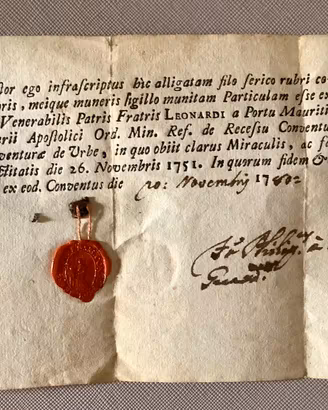 tor ego infrascriptus hic alligatam filo serico rubri co
oris, meique muneris sigillo munitam Particulam esse ex
Venerabilis Patris Fratris LEONARDI a Portu Mauriti
arii Apostolici Ord. Min. Ref. de Recessu Convent
venturæ de Urbe, in quo obiit clarus Miraculis, ac f
ctitatis die 26. Novembris 1751. In quorum fidem &
ex eod. Conventus die 20: Novembris 1780:
Fr. à
Guard.